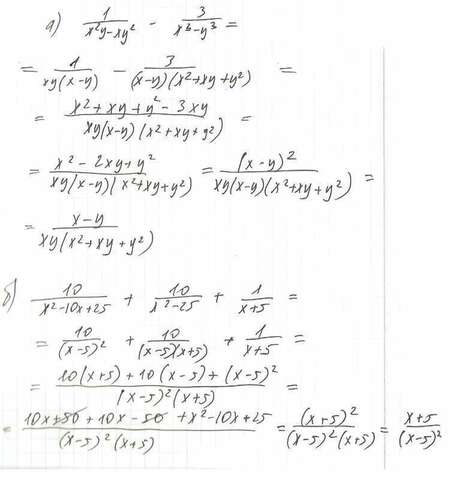 а) 1/(x²y-xy²) - 3/(x³-y³) =
= 1/(xy(x-y)) - 3/((x-y)(x²+xy+y²)) =
= (x²+xy+y²-3xy)/(xy(x-y)(x²+xy+y²)) =
= (x²-2xy+y²)/(xy(x-y)(x²+xy+y²)) = (x-y)²/(xy(x-y)(x²+xy+y²)) =
= (x-y)/(xy(x²+xy+y²))
б) 10/(x²-10x+25) + 10/(x²-25) + 1/(x+5) =
= 10/(x-5)² + 10/((x-5)(x+5)) + 1/(x+5) =
= (10(x+5)+10(x-5)+(x-5)²)/((x-5)²(x+5)) =
= (10x+50+10x-50+x²-10x+25)/((x-5)²(x+5)) = (x+5)²/((x-5)²(x+5)) = (x+5)/(x-5)²